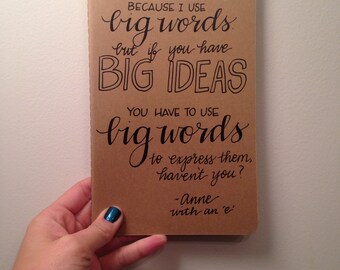 BECAUSE I USE
big words
but if you have
BIG IDEAS
YOU HAVE TO USE
big words
to express them,
haven't you?
-Anne
with an 'e'